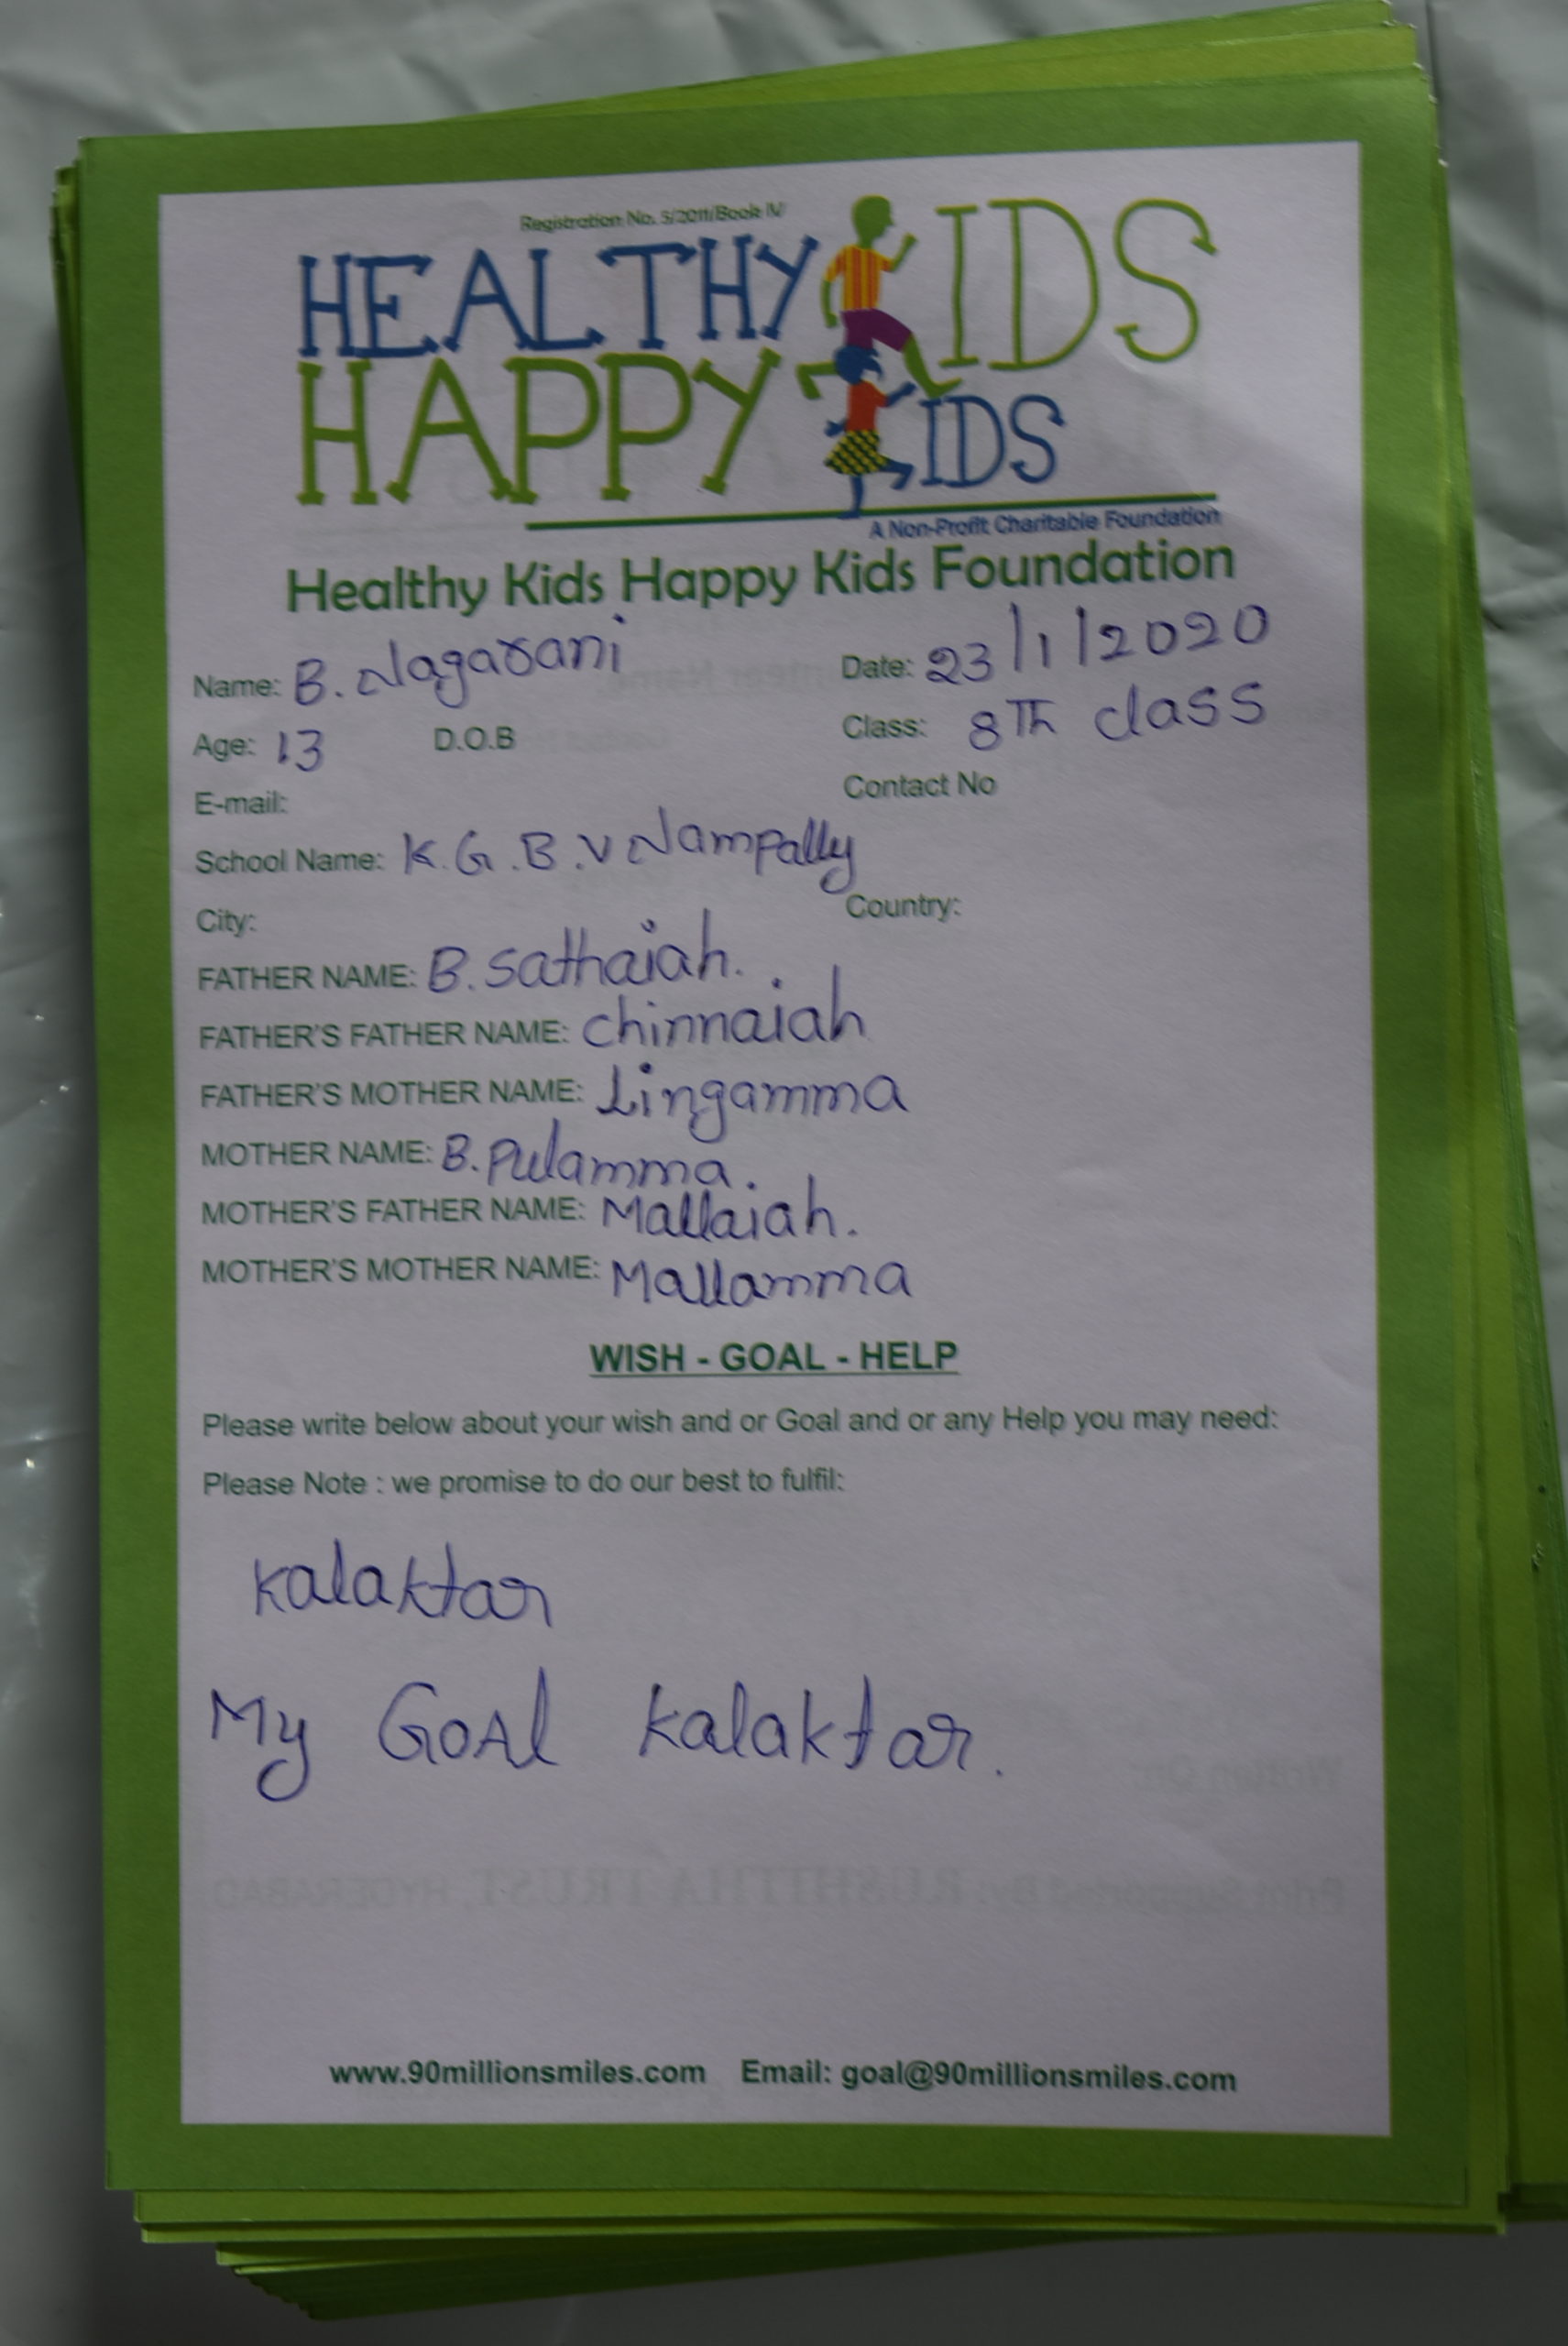 Registration No. 5/2011/Book IV
HEALTHY KIDS
HAPPY KIDS
A Non-Profit Charitable Foundation
Healthy Kids Happy Kids Foundation
Name: B. Nagarani Date: 23/1/2020
Age: 13 D.O.B Class: 8Th class
E-mail: Contact No
School Name: K.G.B.V Nampally
City: Country:
FATHER NAME: B. Sathaiah.
FATHER'S FATHER NAME: chinnaiah
FATHER'S MOTHER NAME: Lingamma
MOTHER NAME: B. Pulamma.
MOTHER'S FATHER NAME: Mallaiah.
MOTHER'S MOTHER NAME: Mallamma
WISH - GOAL - HELP
Please write below about your wish and or Goal and or any Help you may need:
Please Note : we promise to do our best to fulfil:
kalaktar
My GOAl kalaktar.
www.90millionsmiles.com Email: goal@90millionsmiles.com